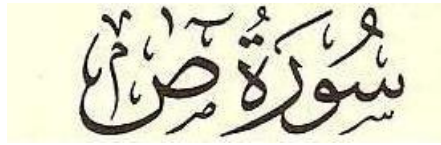 سُورَةُ صٓ